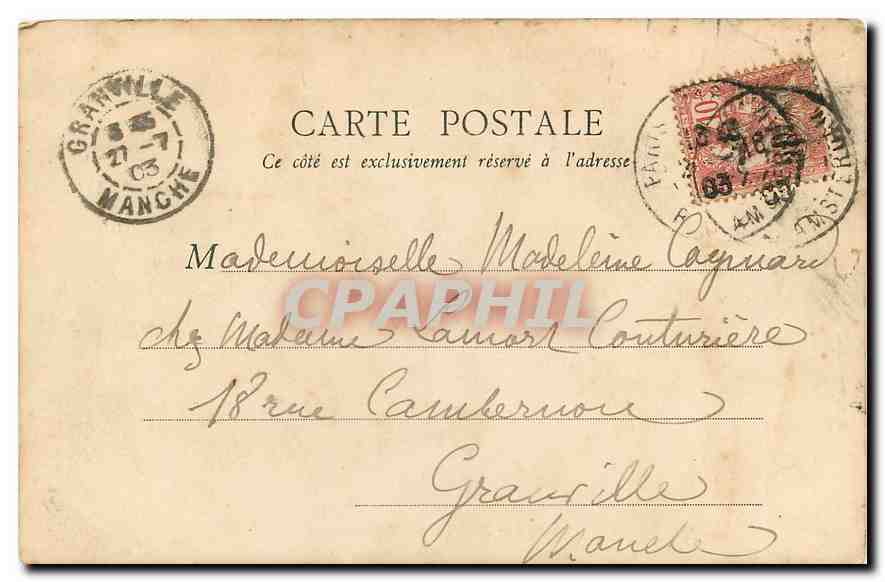 GRANVILLE
27 -7
03
MANCHE
CARTE POSTALE
Ce côté est exclusivement réservé à l'adresse
PARIS
10
03
Mademoiselle Madeleine
CPAPHIL
chez Madame Lamort Couturière
18 rue Cambernon
Granville
Manche